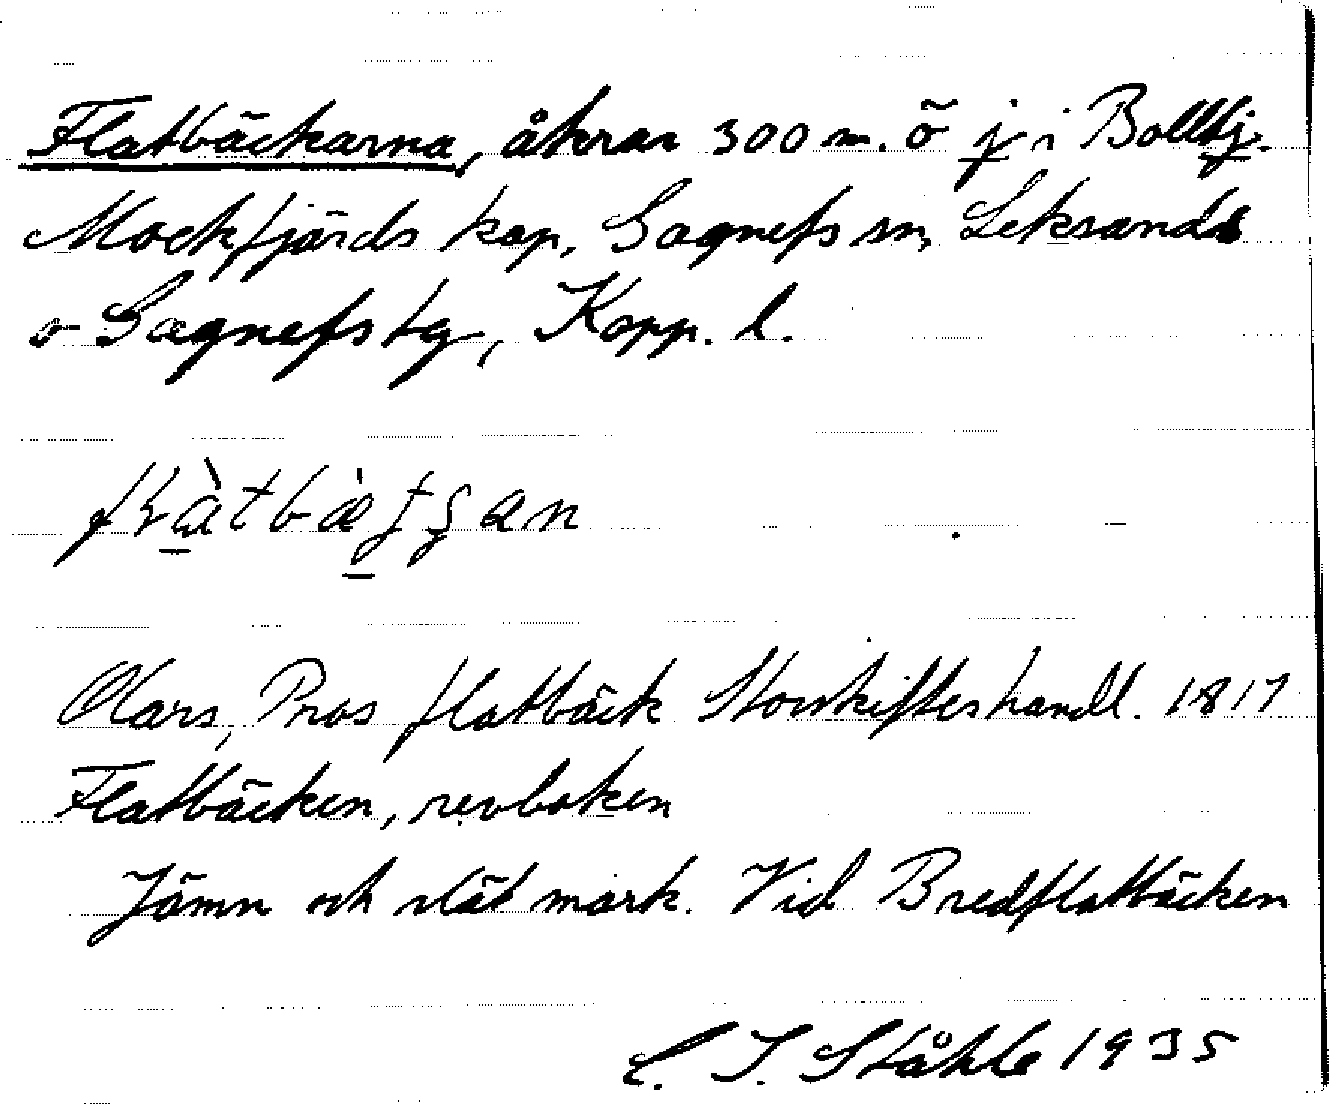 Flatbäckarna, åkrar 300 m. ö j i Bolltj.
Mockfjärds kap, Gagnefs sn, Leksands
o Gagnefs tg, Kopp. l.
Olars, Pros flatbäck Storskifteshandl. 1817
Flatbäcken, revboken
Jämn och slät mark. Vid Bredflatbäcken
C. I. Ståhle 1935